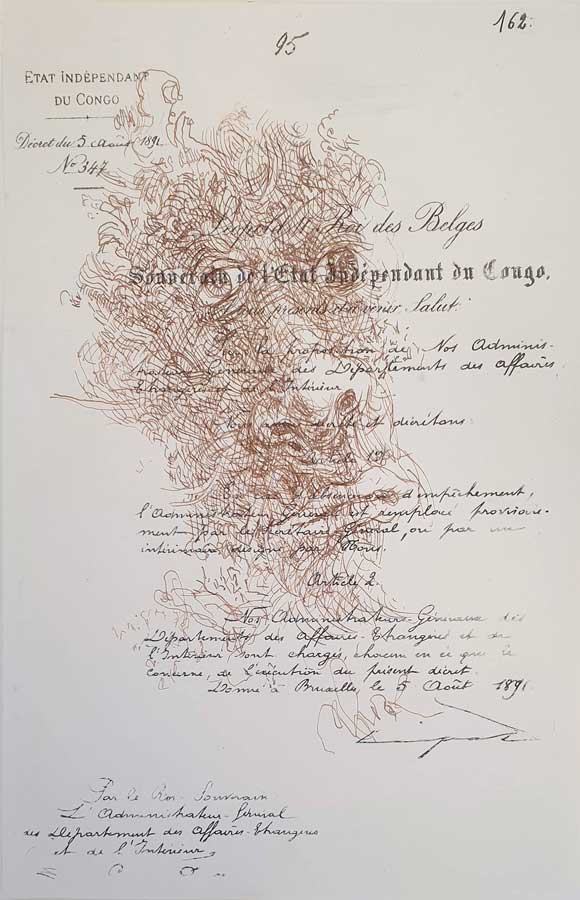 95
162.
ETAT INDÉPENDANT
DU CONGO
Décret du 5 Août 1891
No 347
Léopold II Roi des Belges
Souverain de l'Etat Indépendant du Congo,
présents et à venir, Salut:
Sur la proposition de Nos Adminis-
trateurs Généraux des Départements des affaires
Etrangères et de l'Intérieur
Nous avons décrété et décrétons:
Article 1er
En cas d'absence ou d'empêchement,
l'Administrateur Général est remplacé provisoire-
ment par le Secrétaire Général, ou par un
intérimaire désigné par Nous.
Article 2.
Nos Administrateurs-Généraux des
Départements des Affaires-Etrangères et de
l'Intérieur sont chargés, chacun en ce qui le
concerne, de l'exécution du présent décret.
Donné à Bruxelles, le 5 Août 1891
Par le Roi-Souverain
L'Administrateur-Général
des Département des Affaires-Etrangères
et de l'Intérieur,